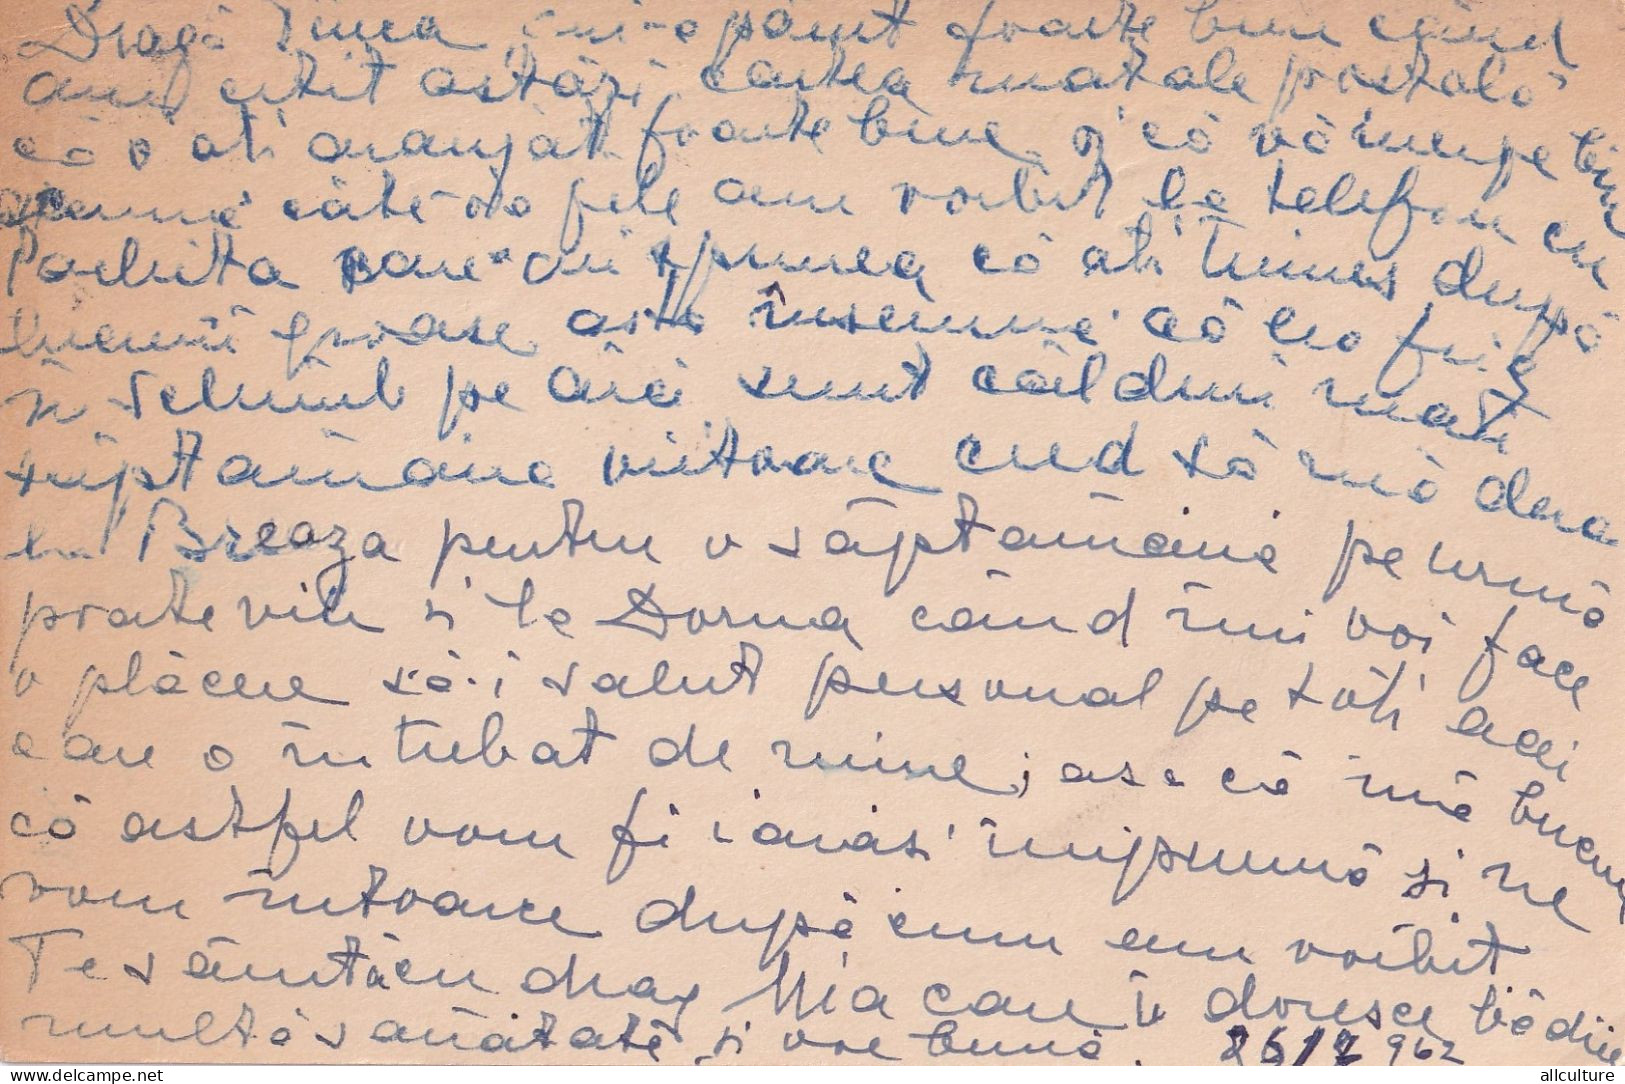 Dragă mi-a părut foarte bine când
am citit astăzi cartea matale postală
că v ati aranjat foarte bine și că vă merge bine
câte-va zile am vorbit la telefon cu
Pachita care-mi spunea că ati trimes după
groase asta însemnă că nu
în schimb pe aici sunt călduri mari
săptămâna viitoare cred să mă duc
la Breaza pentru o săptămână pe urmă
poate viu si la Dorna când îmi voi face
o plăcere să-i salut personal pe toti acei
care o întrebat de mine, asa că mă bucur
că astfel vom fi iarasi împreună si ne
vom întoarce după cum am vorbit
Te sărută cu drag Mia care îi doreste
multă sănătate si voe bună. 962
allculture